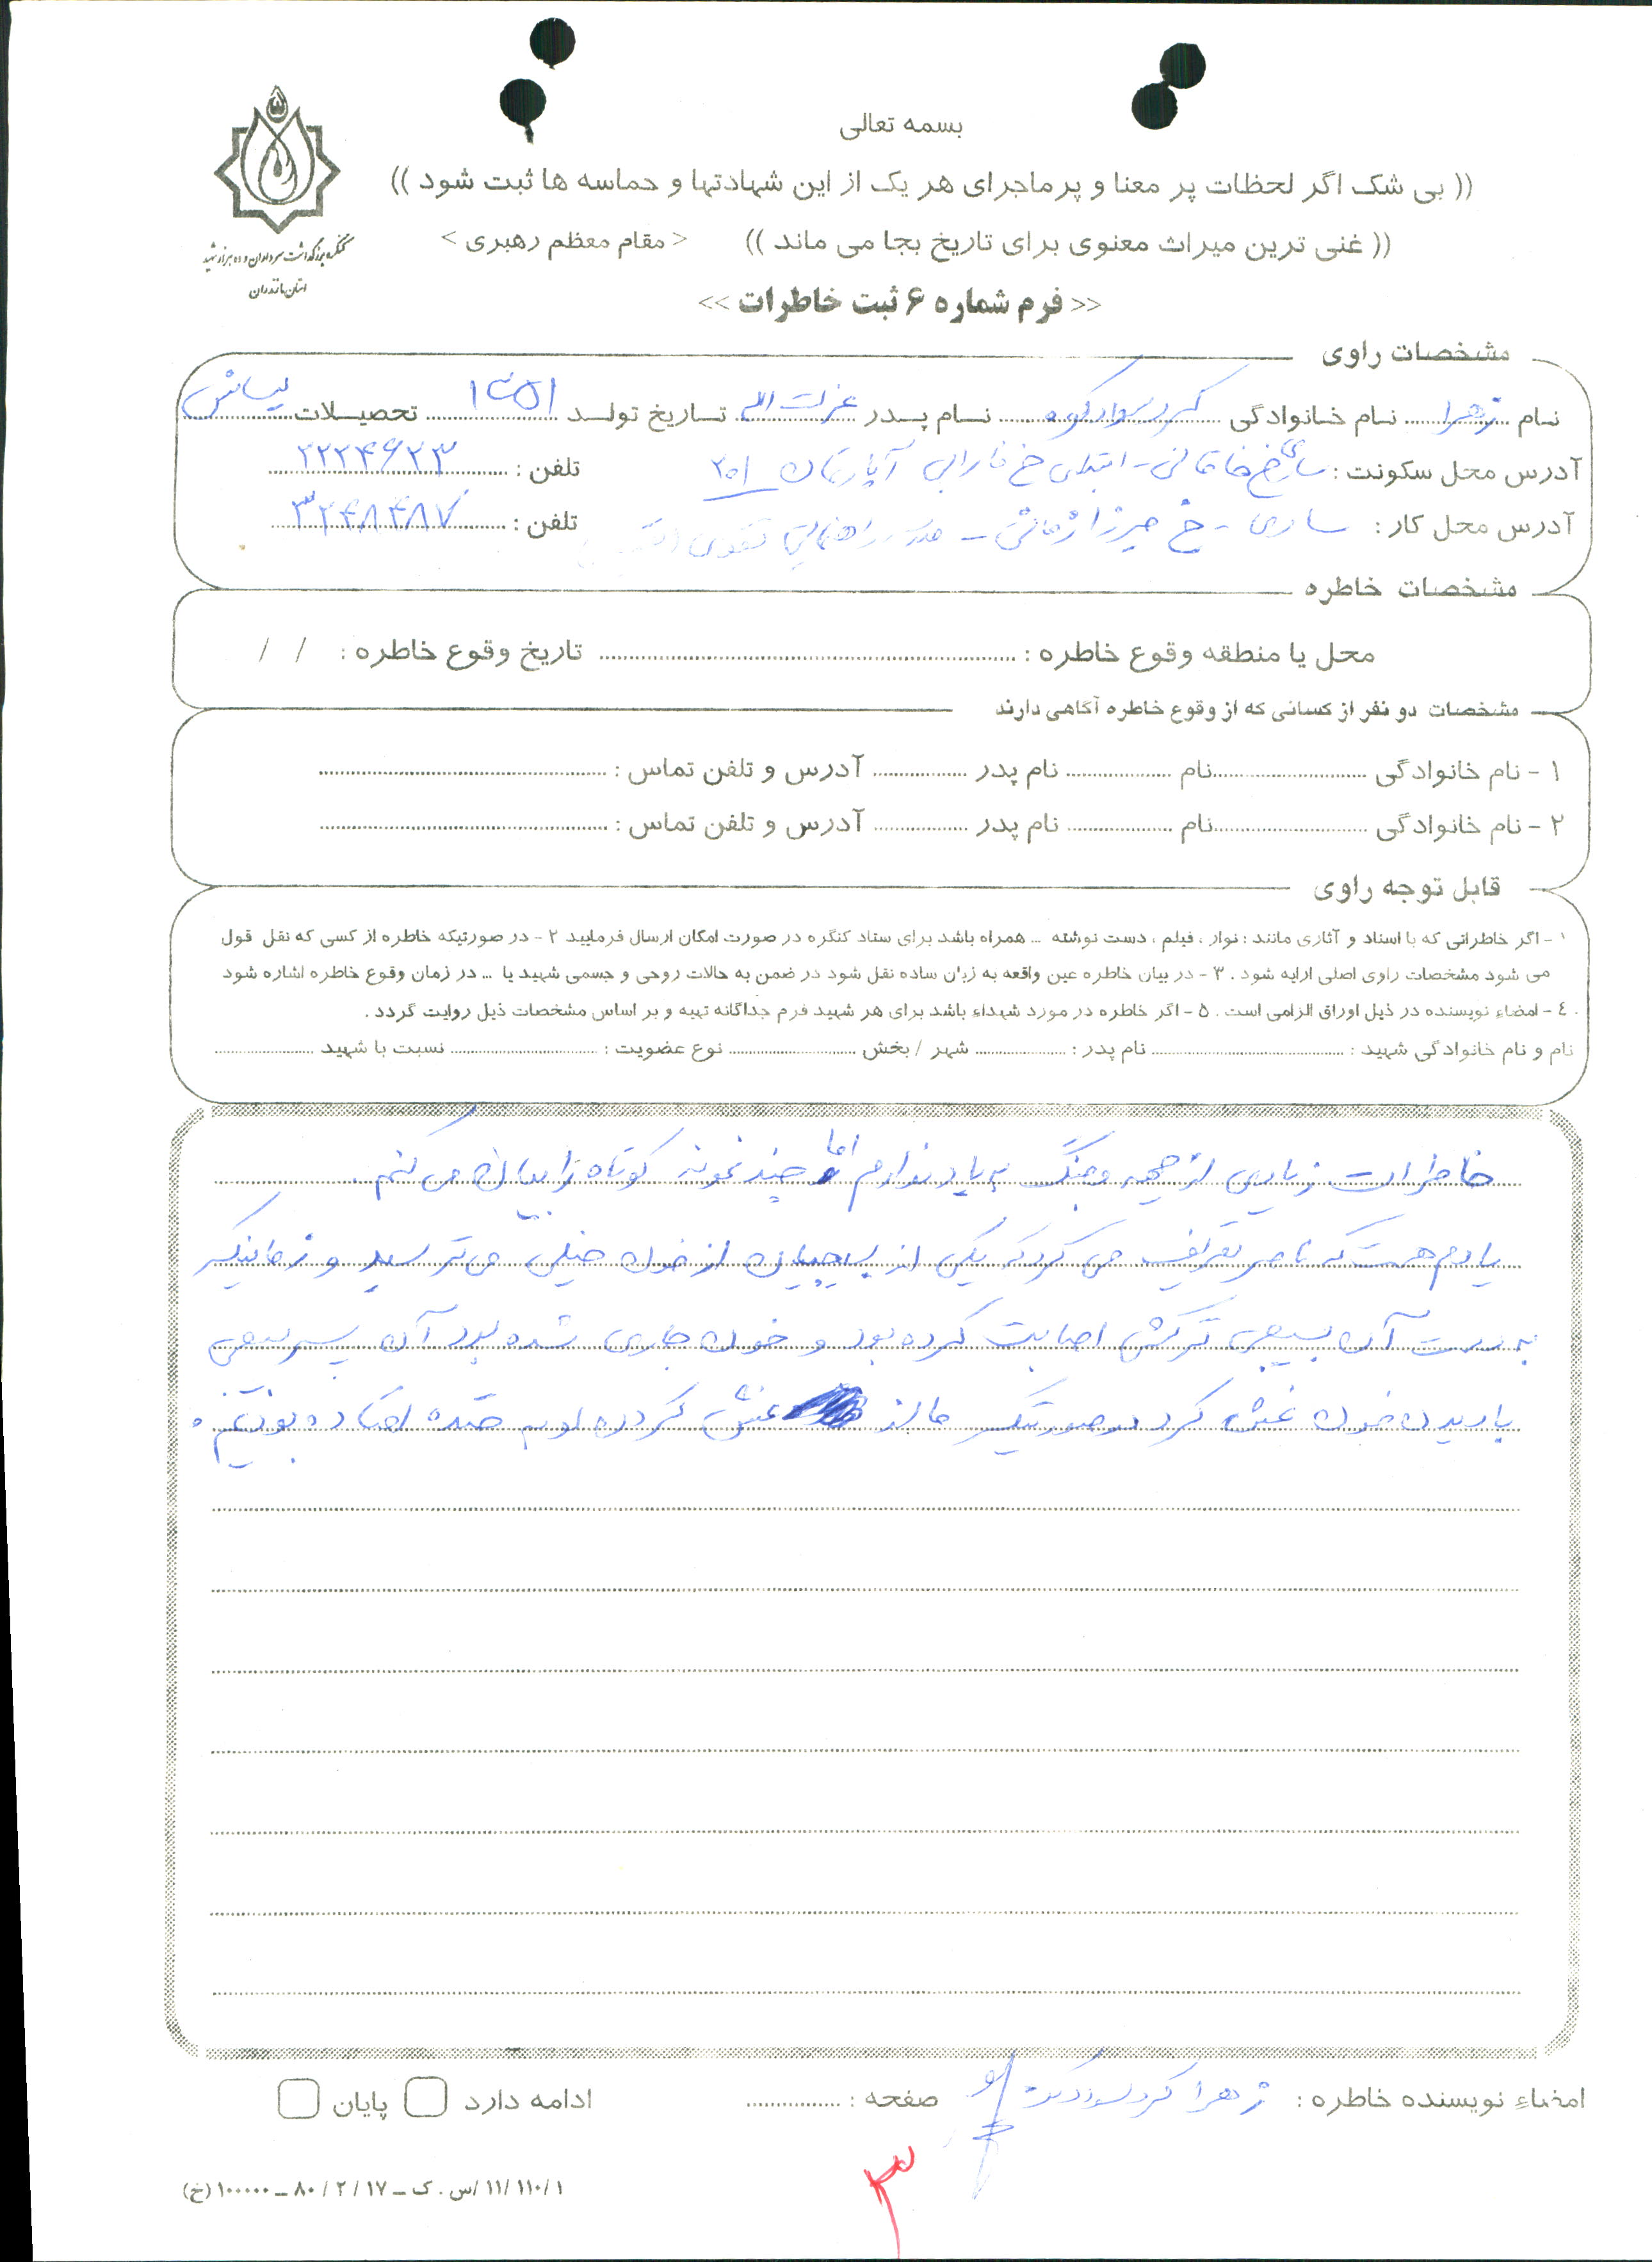 بسمه تعالی
(( بی شک اگر لحظات پر معنا و پر ماجرای هر یک از این شهادتها و حماسه ها ثبت شود ))
(( غنی ترین میراث معنوی برای تاریخ بجا می ماند )) < مقام معظم رهبری >
کنگره بزرگداشت سرداران و ده هزار شهید
استان مازندران
<< فرم شماره ۶ ثبت خاطرات >>
مشخصات راوی
نام زهرا نام خانوادگی کرد سوادکوه نام پدر عزت الله تاریخ تولد ۱۳۵۱ تحصیلات لیسانس
آدرس محل سکونت : ساری خ - ابتدای خ فارابی آپارتمان ۳۰۱ تلفن : ۲۲۲۴۶۲۳
آدرس محل کار : ساری - خ میرزا زمانی - راهنمایی تقوی تلفن : ۳۲۴۸۴۸۷
مشخصات خاطره
محل یا منطقه وقوع خاطره : تاریخ وقوع خاطره : / /
مشخصات دو نفر از کسانی که از وقوع خاطره آگاهی دارند
۱ - نام خانوادگی نام نام پدر آدرس و تلفن تماس :
۲ - نام خانوادگی نام نام پدر آدرس و تلفن تماس :
قابل توجه راوی
۱ - اگر خاطراتی که با اسناد و آثاری مانند : نوار ، فیلم ، دست نوشته ... همراه باشد برای ستاد کنگره در صورت امکان ارسال فرمایید ۲ - در صورتیکه خاطره از کسی که نقل قول
می شود مشخصات راوی اصلی ارایه شود . ۳ - در بیان خاطره عین واقعه به زبان ساده نقل شود در ضمن به حالات روحی و جسمی شهید یا ... در زمان وقوع خاطره اشاره شود
. ٤ - امضاء نویسنده در ذیل اوراق الزامی است . ۵ - اگر خاطره در مورد شهداء باشد برای هر شهید فرم جداگانه تهیه و بر اساس مشخصات ذیل روایت گردد .
نام و نام خانوادگی شهید : نام پدر : شهر / بخش نوع عضویت : نسبت با شهید
خاطرات زیادی از جبهه و جنگ به یاد ندارم اما چند نمونه کوتاه را بیان می کنم .
یادم هست که ناصر تعریف می کرد که یکی از بسیجیان از خون خیلی می ترسید و زمانیکه
به دست آن بسیجی ترکش اصابت کرده بود و خون جاری شده بود آن پسر بسیجی
با دیدن خون غش کرد در صورتیکه ما از غش کردن او به خنده افتاده بودیم .
امضاء نویسنده خاطره : زهرا کرد سوادکوه صفحه : ادامه دارد پایان
۳
۱۱/۱۱۰/۱ /س . ک – ۱۷ / ۲ / ۸۰ – ۱۰۰۰۰۰ (خ)